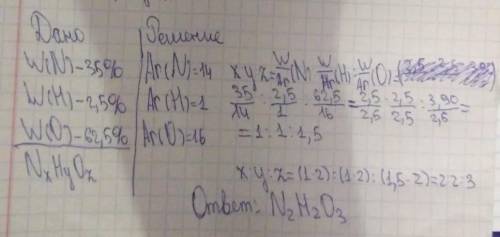 Дано Решение
W(N)-35%
W(H)-2,5%
W(O)-62,5%
NxHyOz
Ar(N)=14
Ar(H)=1
Ar(O)=16
x:y:z=W/Ar(N):W/Ar(H):W/Ar(O)=
35/14:2,5/1:62,5/16=2,5/2,5:2,5/2,5:3,90/2,5=
=1:1:1,5
x:y:z=(1·2):(1·2):(1,5·2)=2:2:3
Ответ: N2H2O3